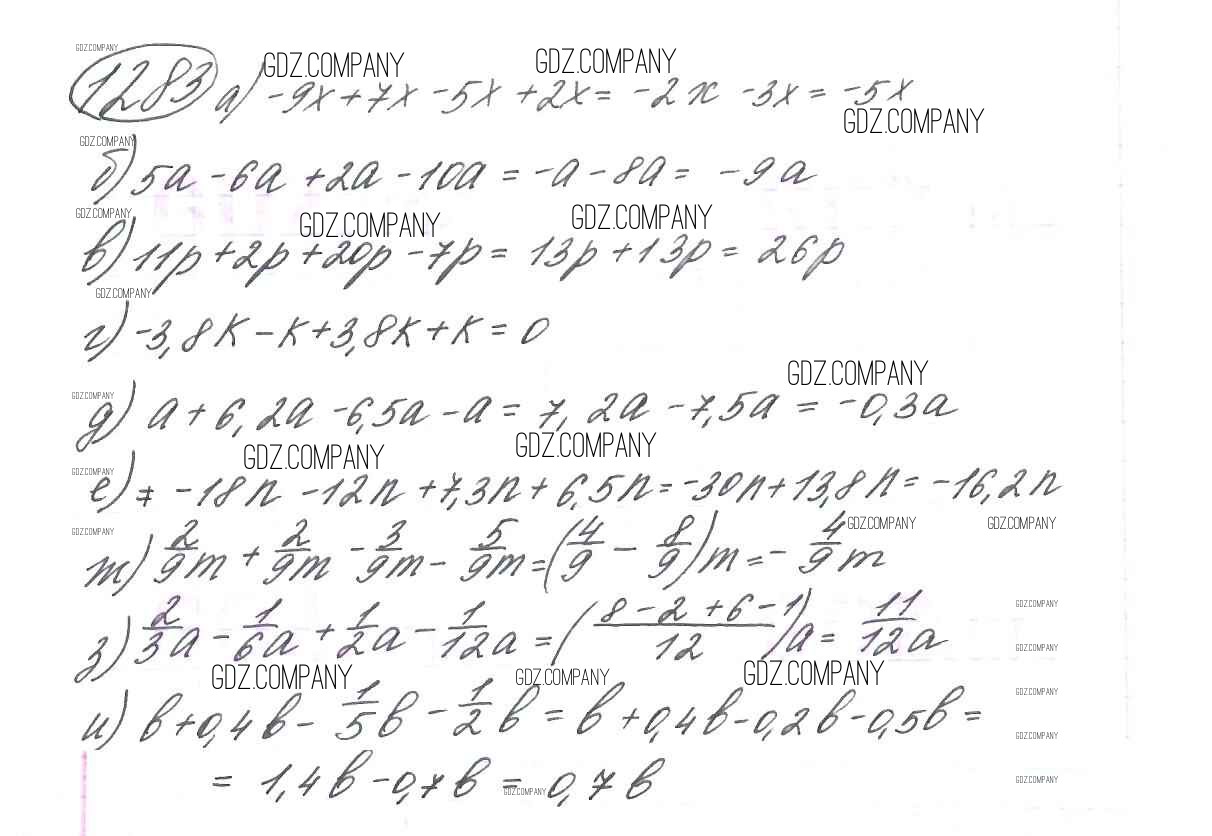 GDZ.COMPANY
GDZ.COMPANY GDZ.COMPANY
1283 а) -9x+7x -5x +2x= -2x -3x = -5x
GDZ.COMPANY
GDZ.COMPANY
б) 5a -6a +2a -10a = -a -8a = -9a
GDZ.COMPANY GDZ.COMPANY GDZ.COMPANY
в) 11p+2p+20p -7p = 13p +13p = 26p
GDZ.COMPANY
г) -3,8k -k+3,8k+k = 0
GDZ.COMPANY
GDZ.COMPANY
д) a+6,2a -6,5a -a = 7,2a -7,5a = -0,3a
GDZ.COMPANY GDZ.COMPANY
GDZ.COMPANY
е) = -18n -12n +7,3n+6,5n = -30n+13,8n = -16,2n
GDZ.COMPANY GDZ.COMPANY GDZ.COMPANY
m) 2/9m + 2/9m - 3/9m - 5/9m = (4/9 - 8/9)m = - 4/9m
GDZ.COMPANY
з) 2/3a - 1/6a + 1/2a - 1/12a = ((8-2+6-1)/12)a = 11/12a
GDZ.COMPANY
GDZ.COMPANY GDZ.COMPANY GDZ.COMPANY
GDZ.COMPANY
и) b+0,4b - 1/5b - 1/2b = b +0,4b -0,2b -0,5b =
GDZ.COMPANY
= 1,4b -0,7b = 0,7b
GDZ.COMPANY GDZ.COMPANY